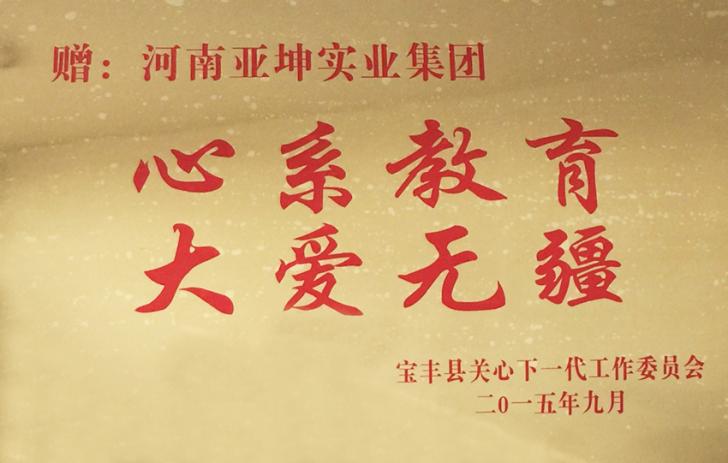 赠：河南亚坤实业集团
心系教育
大爱无疆
宝丰县关心下一代工作委员会
二0一五年九月